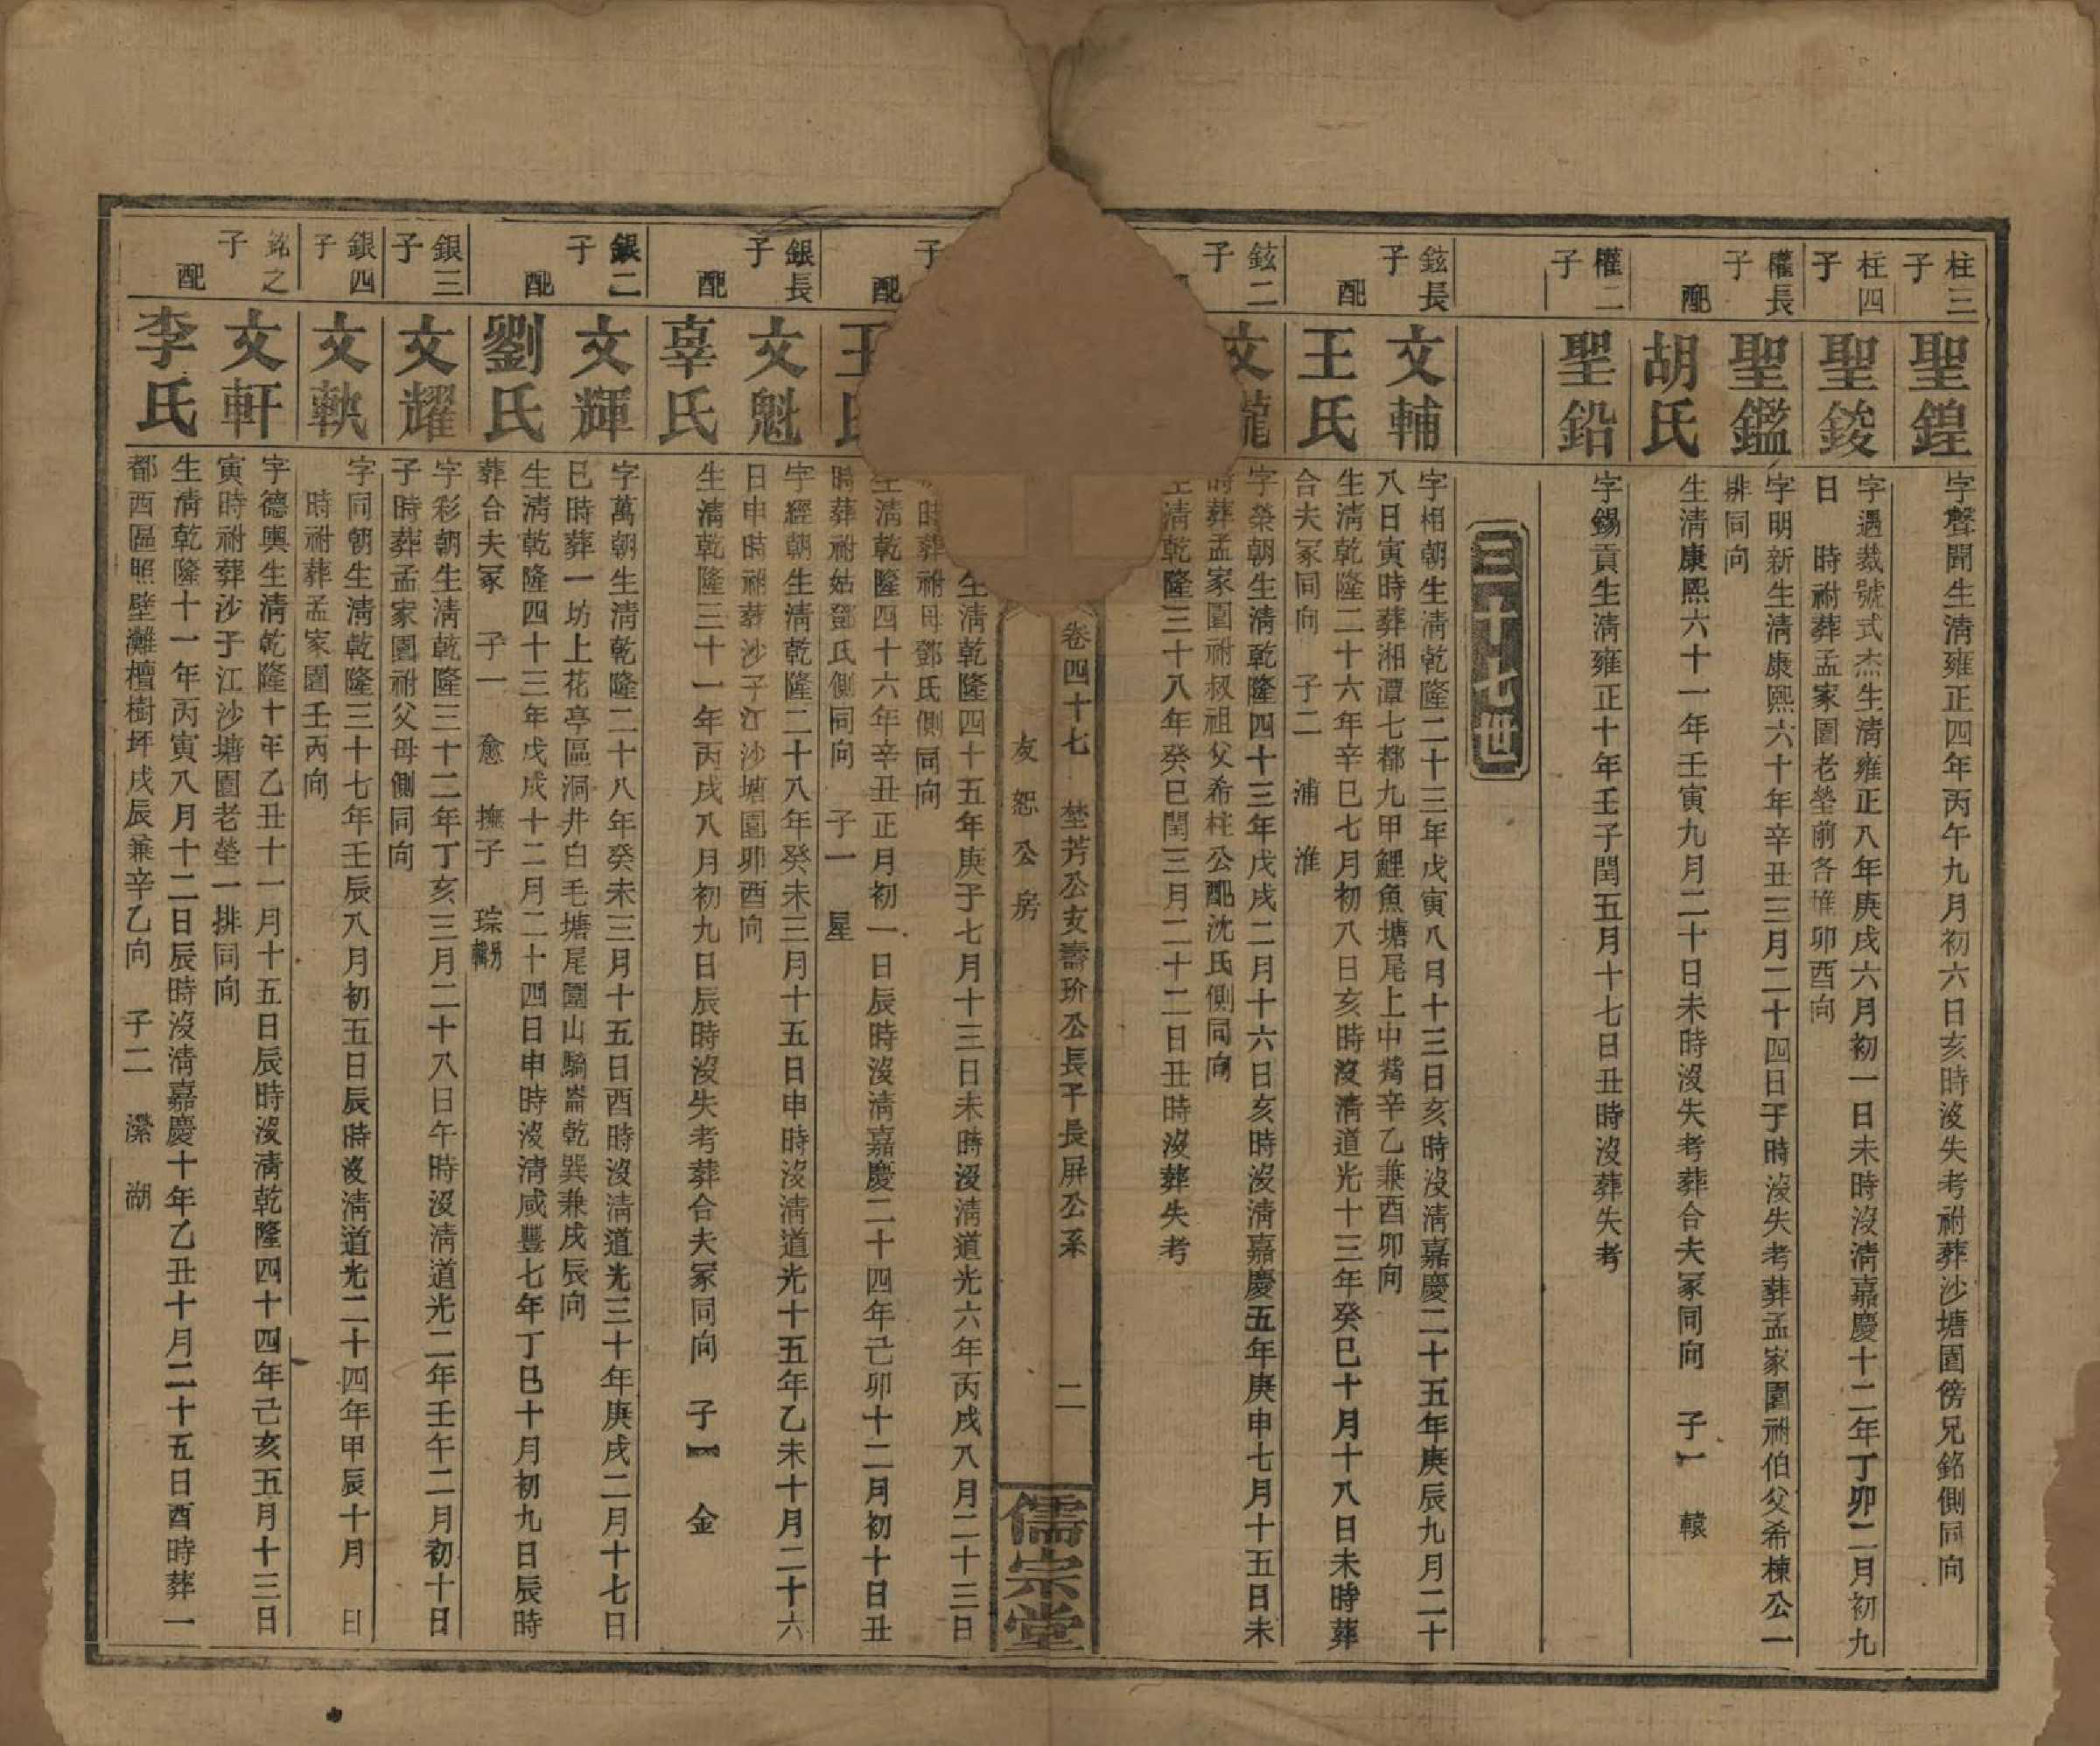 柱三子
聖鍠
字聲聞生淸雍正四年丙午九月初六日亥時沒失考祔葬沙塘園傍兄銘側同向
柱四子
聖鋑
字遇裁號式杰生淸雍正八年庚戌六月初一日未時沒淸嘉慶十二年丁卯二月初九
日 時祔葬孟家園老塋前各堆卯酉向
權長子
聖鑑
字明新生淸康熙六十年辛丑三月二十四日子時沒失考葬孟家園祔伯父希棟公一
排同向
配
胡氏
生淸康熙六十一年壬寅九月二十日未時沒失考葬合夫冢同向 子一 轅
權二子
聖鉛
字錫貢生淸雍正十年壬子閏五月十七日丑時沒葬失考
三十七世
鉉長子
文輔
字相朝生淸乾隆二十三年戊寅八月十三日亥時沒淸嘉慶二十五年庚辰九月二十
八日寅時葬湘潭七都九甲鯉魚塘尾上中嘴辛乙兼酉卯向
配
王氏
生淸乾隆二十六年辛巳七月初八日亥時沒淸道光十三年癸巳十月十八日未時葬
合夫冢同向 子二 浦 淮
鉉二子
文龍
字榮朝生淸乾隆四十三年戊戌二月十六日亥時沒淸嘉慶五年庚申七月十五日未
時葬孟家園祔叔祖父希柱公配沈氏側同向
生淸乾隆三十八年癸巳閏三月二十二日丑時沒葬失考
卷四十七 埜芳公支壽玠公長子長屏公系 二
友恕公房
儒宗堂
子
生淸乾隆四十五年庚子七月十三日未時沒淸道光六年丙戌八月二十三日
時葬祔母鄧氏側同向
配
王氏
生淸乾隆四十六年辛丑正月初一日辰時沒淸嘉慶二十四年己卯十二月初十日丑
時葬祔姑鄧氏側同向 子一 星
銀長子
文魁
字經朝生淸乾隆二十八年癸未三月十五日申時沒淸道光十五年乙未十月二十六
日申時祔葬沙子江沙塘園卯酉向
配
辜氏
生淸乾隆三十一年丙戌八月初九日辰時沒失考葬合夫冢同向 子一 金
銀二子
文輝
字萬朝生淸乾隆二十八年癸未三月十五日酉時沒淸道光三十年庚戌二月十七日
巳時葬一坊上花亭區洞井白毛塘尾園山騎崙乾巽兼戌辰向
配
劉氏
生淸乾隆四十三年戊戌十二月二十四日申時沒淸咸豐七年丁巳十月初九日辰時
葬合夫冢 子一 愈 撫子 琮另輯
銀三子
文耀
字彩朝生淸乾隆三十二年丁亥三月二十八日午時沒淸道光二年壬午二月初十日
子時葬孟家園祔父母側同向
銀四子
文執
字同朝生淸乾隆三十七年壬辰八月初五日辰時沒淸道光二十四年甲辰十月 日
時祔葬孟家園壬丙向
銘之子
文軒
字德興生淸乾隆十年乙丑十一月十五日辰時沒淸乾隆四十四年己亥五月十三日
寅時祔葬沙子江沙塘園老塋一排同向
配
李氏
生淸乾隆十一年丙寅八月十二日辰時沒淸嘉慶十年乙丑十月二十五日酉時葬一
都西區照壁灘檀樹坪戌辰兼辛乙向 子二 瀠 湖